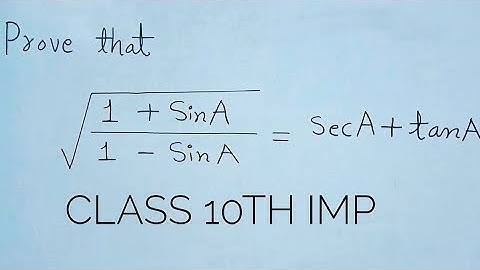 Prove that
√(1 + SinA / 1 - SinA) = SecA + tanA
CLASS 10TH IMP